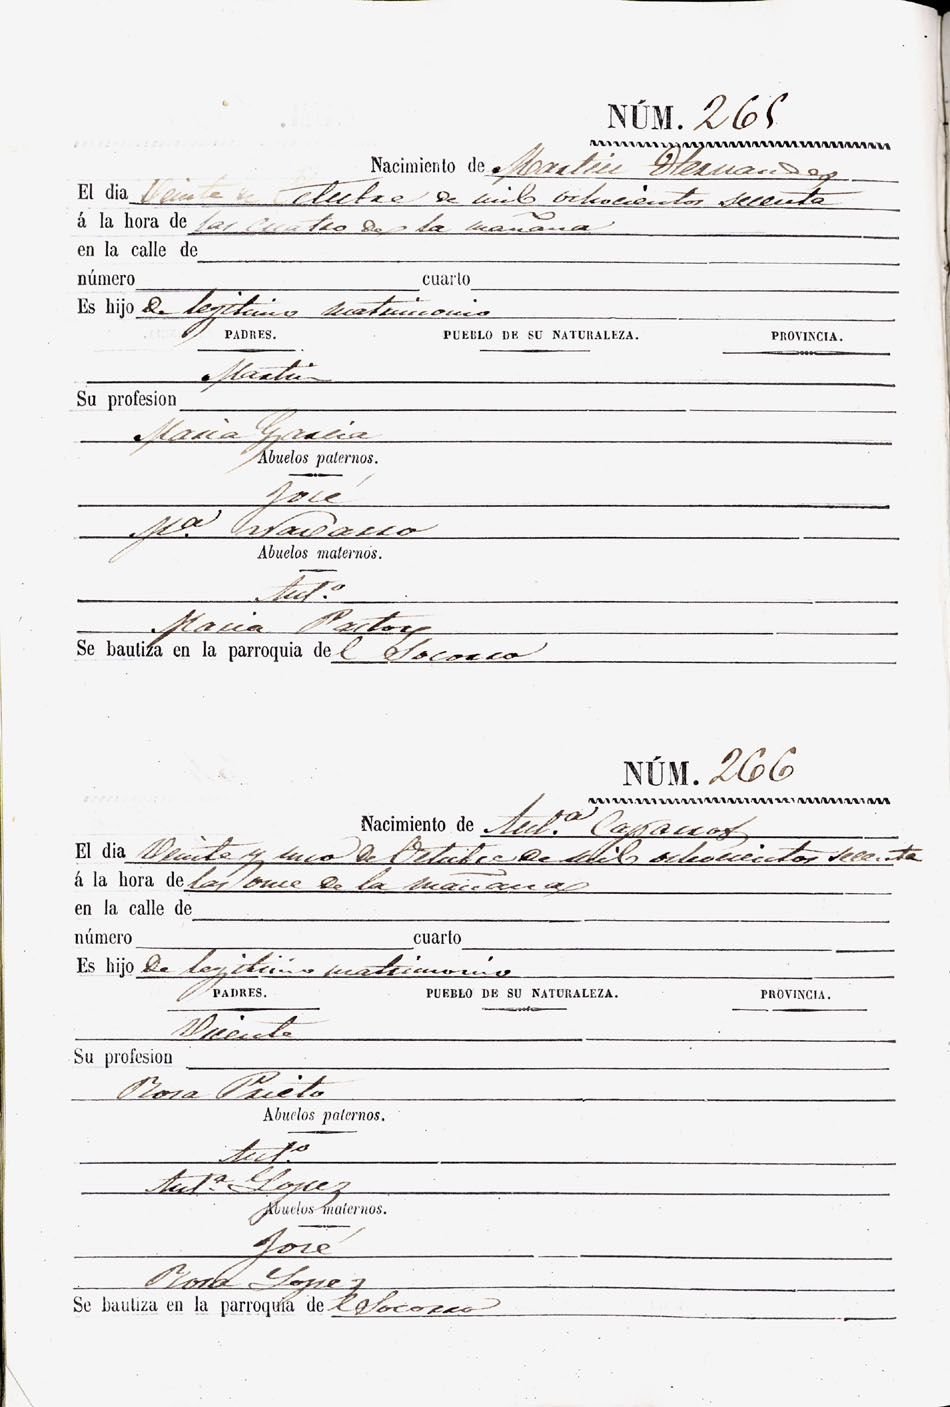 NÚM. 265
Nacimiento de Martin Hernandez
El dia Veinte de Octubre de mil ochocientos secenta
á la hora de las cuatro de la mañana
en la calle de
número cuarto
Es hijo de legitimo matrimonio
PADRES. PUEBLO DE SU NATURALEZA. PROVINCIA.
Martin
Su profesion
Maria Garcia
Abuelos paternos.
José
Mª Navarro
Abuelos maternos.
Antº
Maria Pastor
Se bautiza en la parroquia del Socorro
NÚM. 266
Nacimiento de Antª
El dia Veinte y uno de Octubre de mil ochocientos secenta
á la hora de las once de la mañana
en la calle de
número cuarto
Es hijo de legitimo matrimonio
PADRES. PUEBLO DE SU NATURALEZA. PROVINCIA.
Vicente
Su profesion
Rosa Prieto
Abuelos paternos.
Antº
Antª Lopez
Abuelos maternos.
José
Rosa Lopez
Se bautiza en la parroquia del Socorro